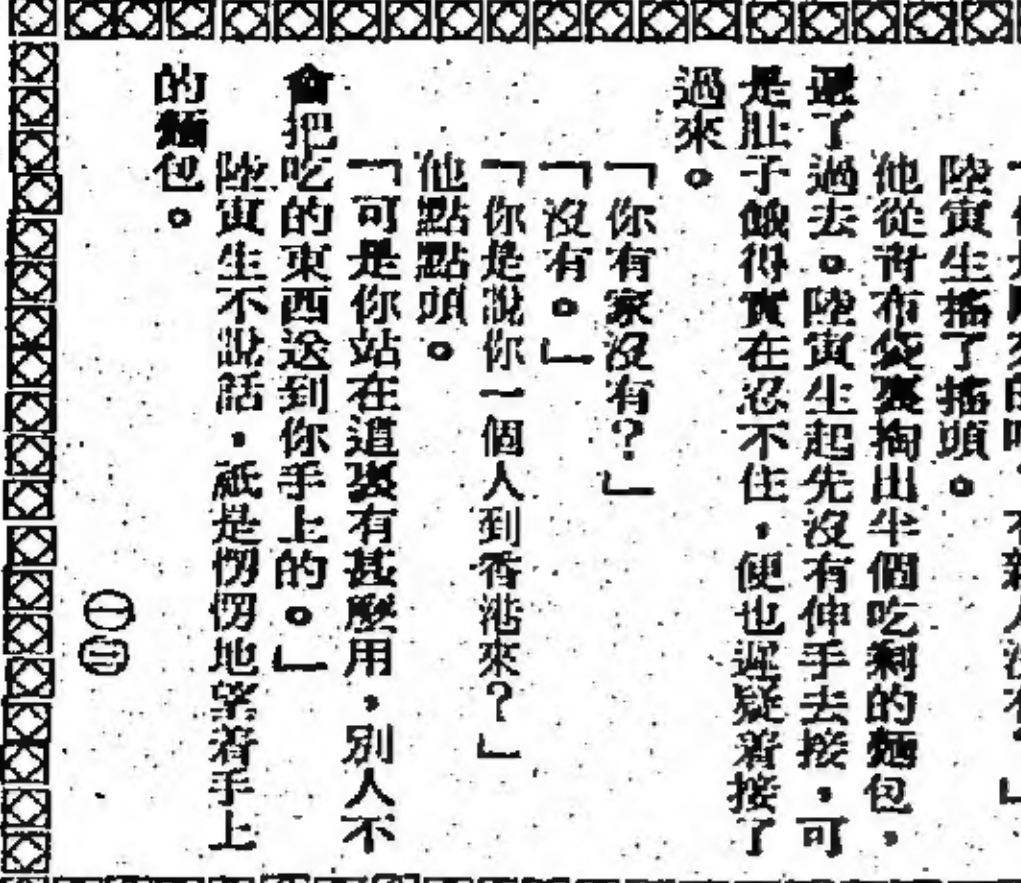 陸寅生搖了搖頭。
他從背布袋裏掏出半個吃剩的麵包，
遞了過去。陸寅生起先沒有伸手去接，可
是肚子餓得實在忍不住，便也遲疑着接了
過來。
「你有家沒有？」
「沒有。」
「你是說你一個人到香港來？」
他點點頭。
「可是你站在這裏有甚麼用，別人不
會把吃的東西送到你手上的。」
陸寅生不說話，祇是愣愣地望着手上
的麵包。
㊀㊂